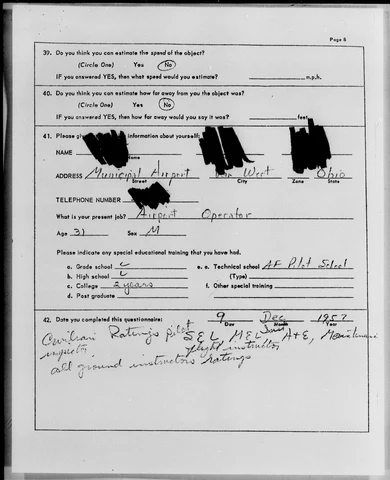 Page 6
39. Do you think you can estimate the speed of the object?
(Circle One) Yes No
IF you answered YES, then what speed would you estimate? m.p.h.
40. Do you think you can estimate how far away from you the object was?
(Circle One) Yes No
IF you answered YES, then how far away would you say it was? feet
41. Please information about yourself:
NAME
ADDRESS Municipal Airport West Ohio
Street City Zone State
TELEPHONE NUMBER
What is your present job? Airport Operator
Age 31 Sex M
Please indicate any special educational training that you have had.
a. Grade school e. Technical school AF Pilot School
b. High school (Type)
c. College 2 years f. Other special training
d. Post graduate
42. Date you completed this questionnaire: 9 Dec 1957
Day Month Year
Civilian Ratings pilot SEL, MEL, A+E, Maintenance
inspector flight instructor
all ground instructors ratings